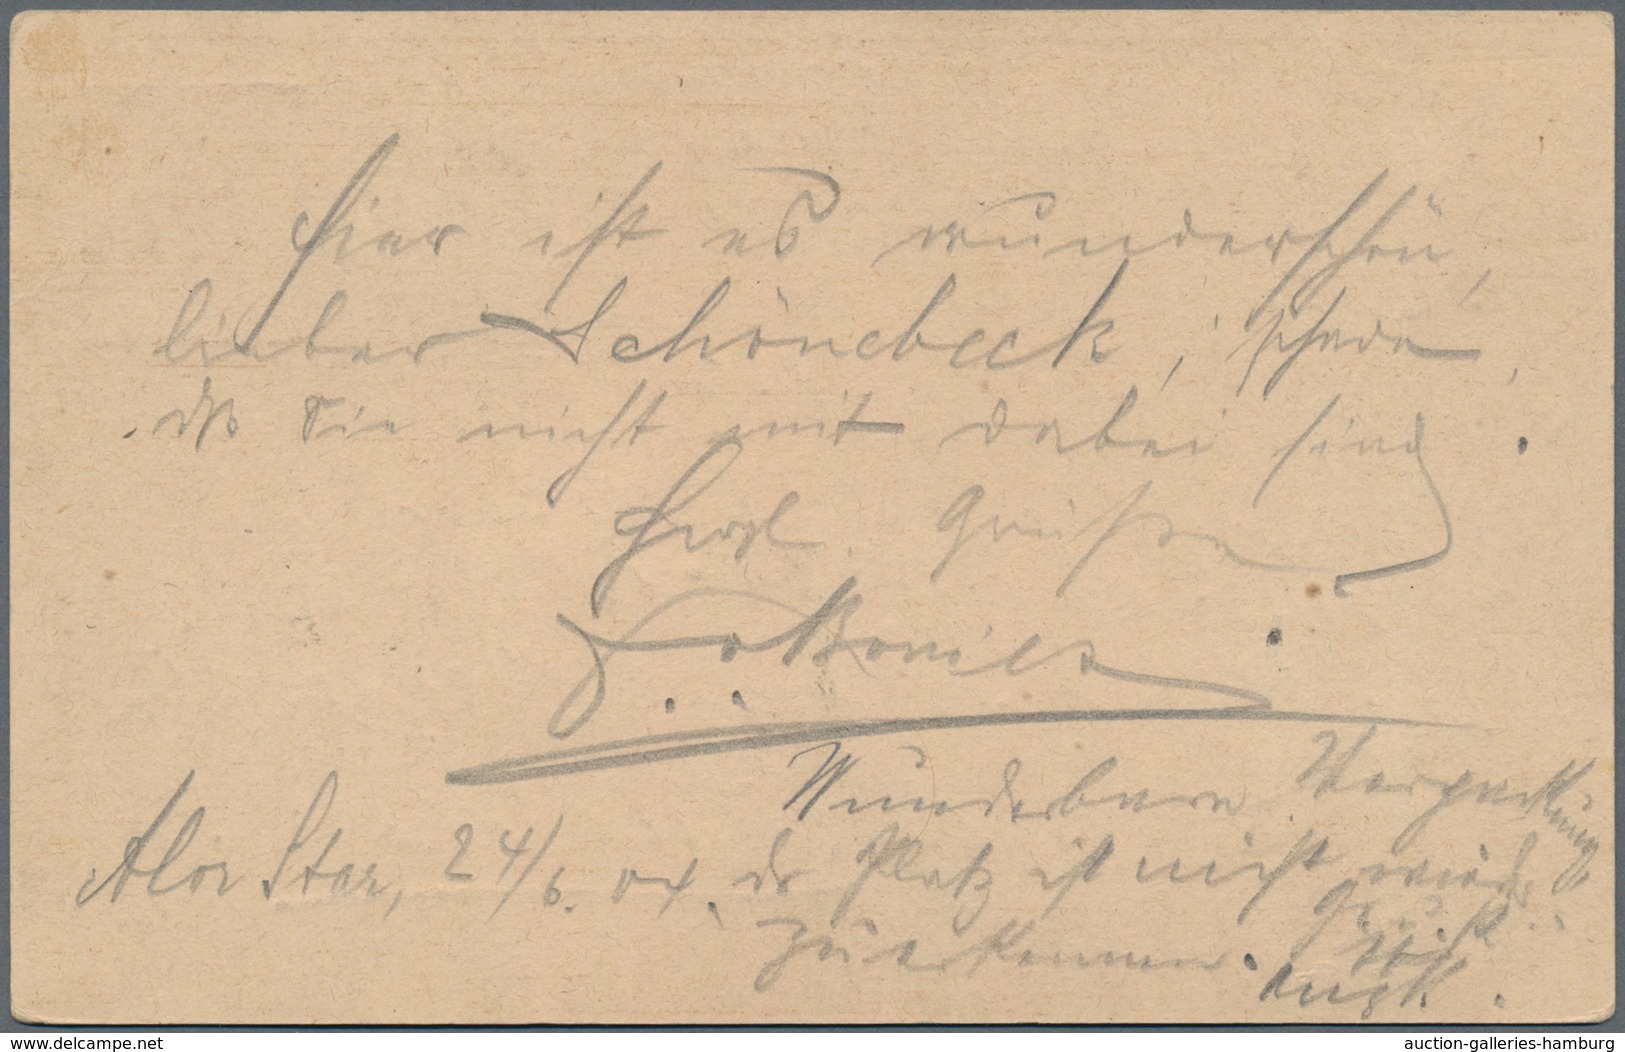 Hier ist es wunderschön,
lieber Schönebeck, schade,
daß Sie nicht mit dabei sind.
Herzl. Grüße
Wunderbare Verpackung
Alor Star, 24/6. 04. der Platz ist nicht wieder
zu erkennen. Gruß
www.delcampe.net
auction-galleries-hamburg